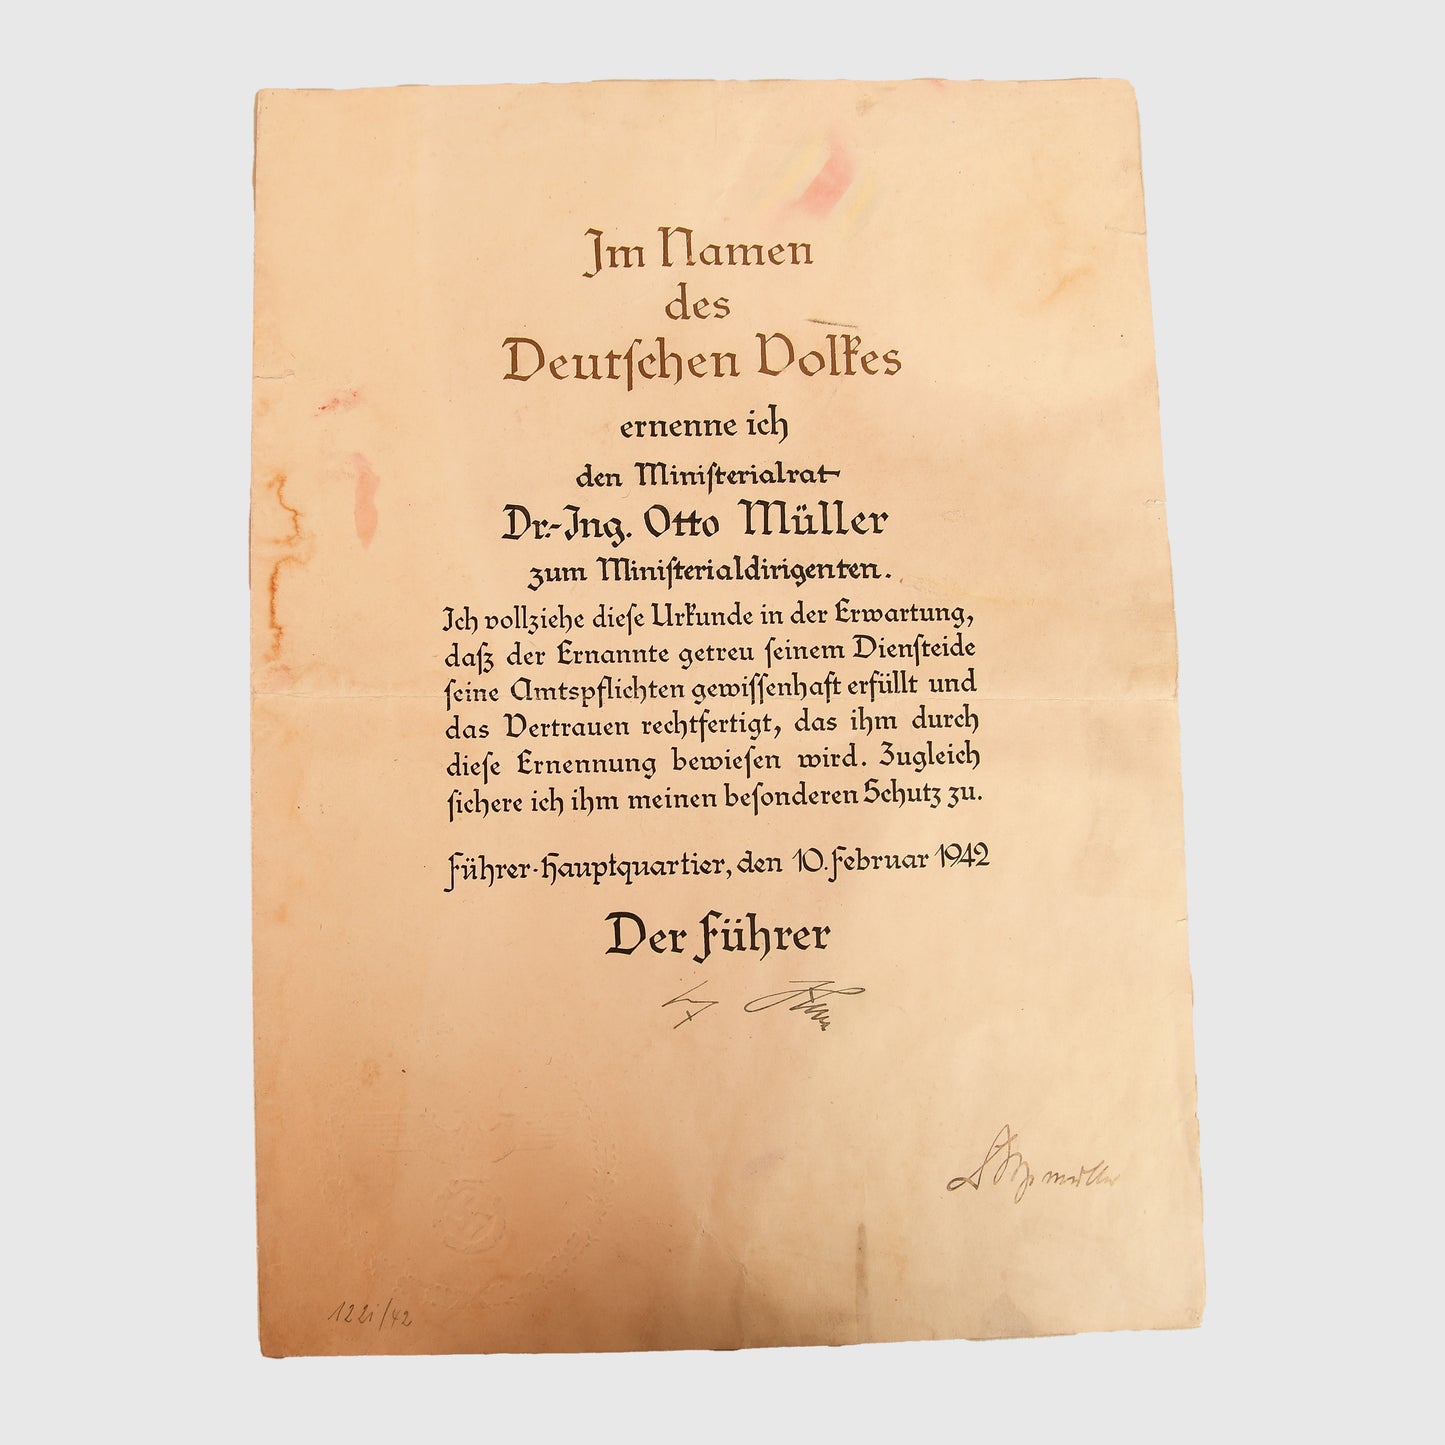 Im Namen
des
Deutschen Volkes
ernenne ich
den Ministerialrat
Dr.-Ing. Otto Müller
zum Ministerialdirigenten.
Ich vollziehe diese Urkunde in der Erwartung,
daß der Ernannte getreu seinem Diensteide
seine Amtspflichten gewissenhaft erfüllt und
das Vertrauen rechtfertigt, das ihm durch
diese Ernennung bewiesen wird. Zugleich
sichere ich ihm meinen besonderen Schutz zu.
Führer-Hauptquartier, den 10. Februar 1942
Der Führer
122i/42